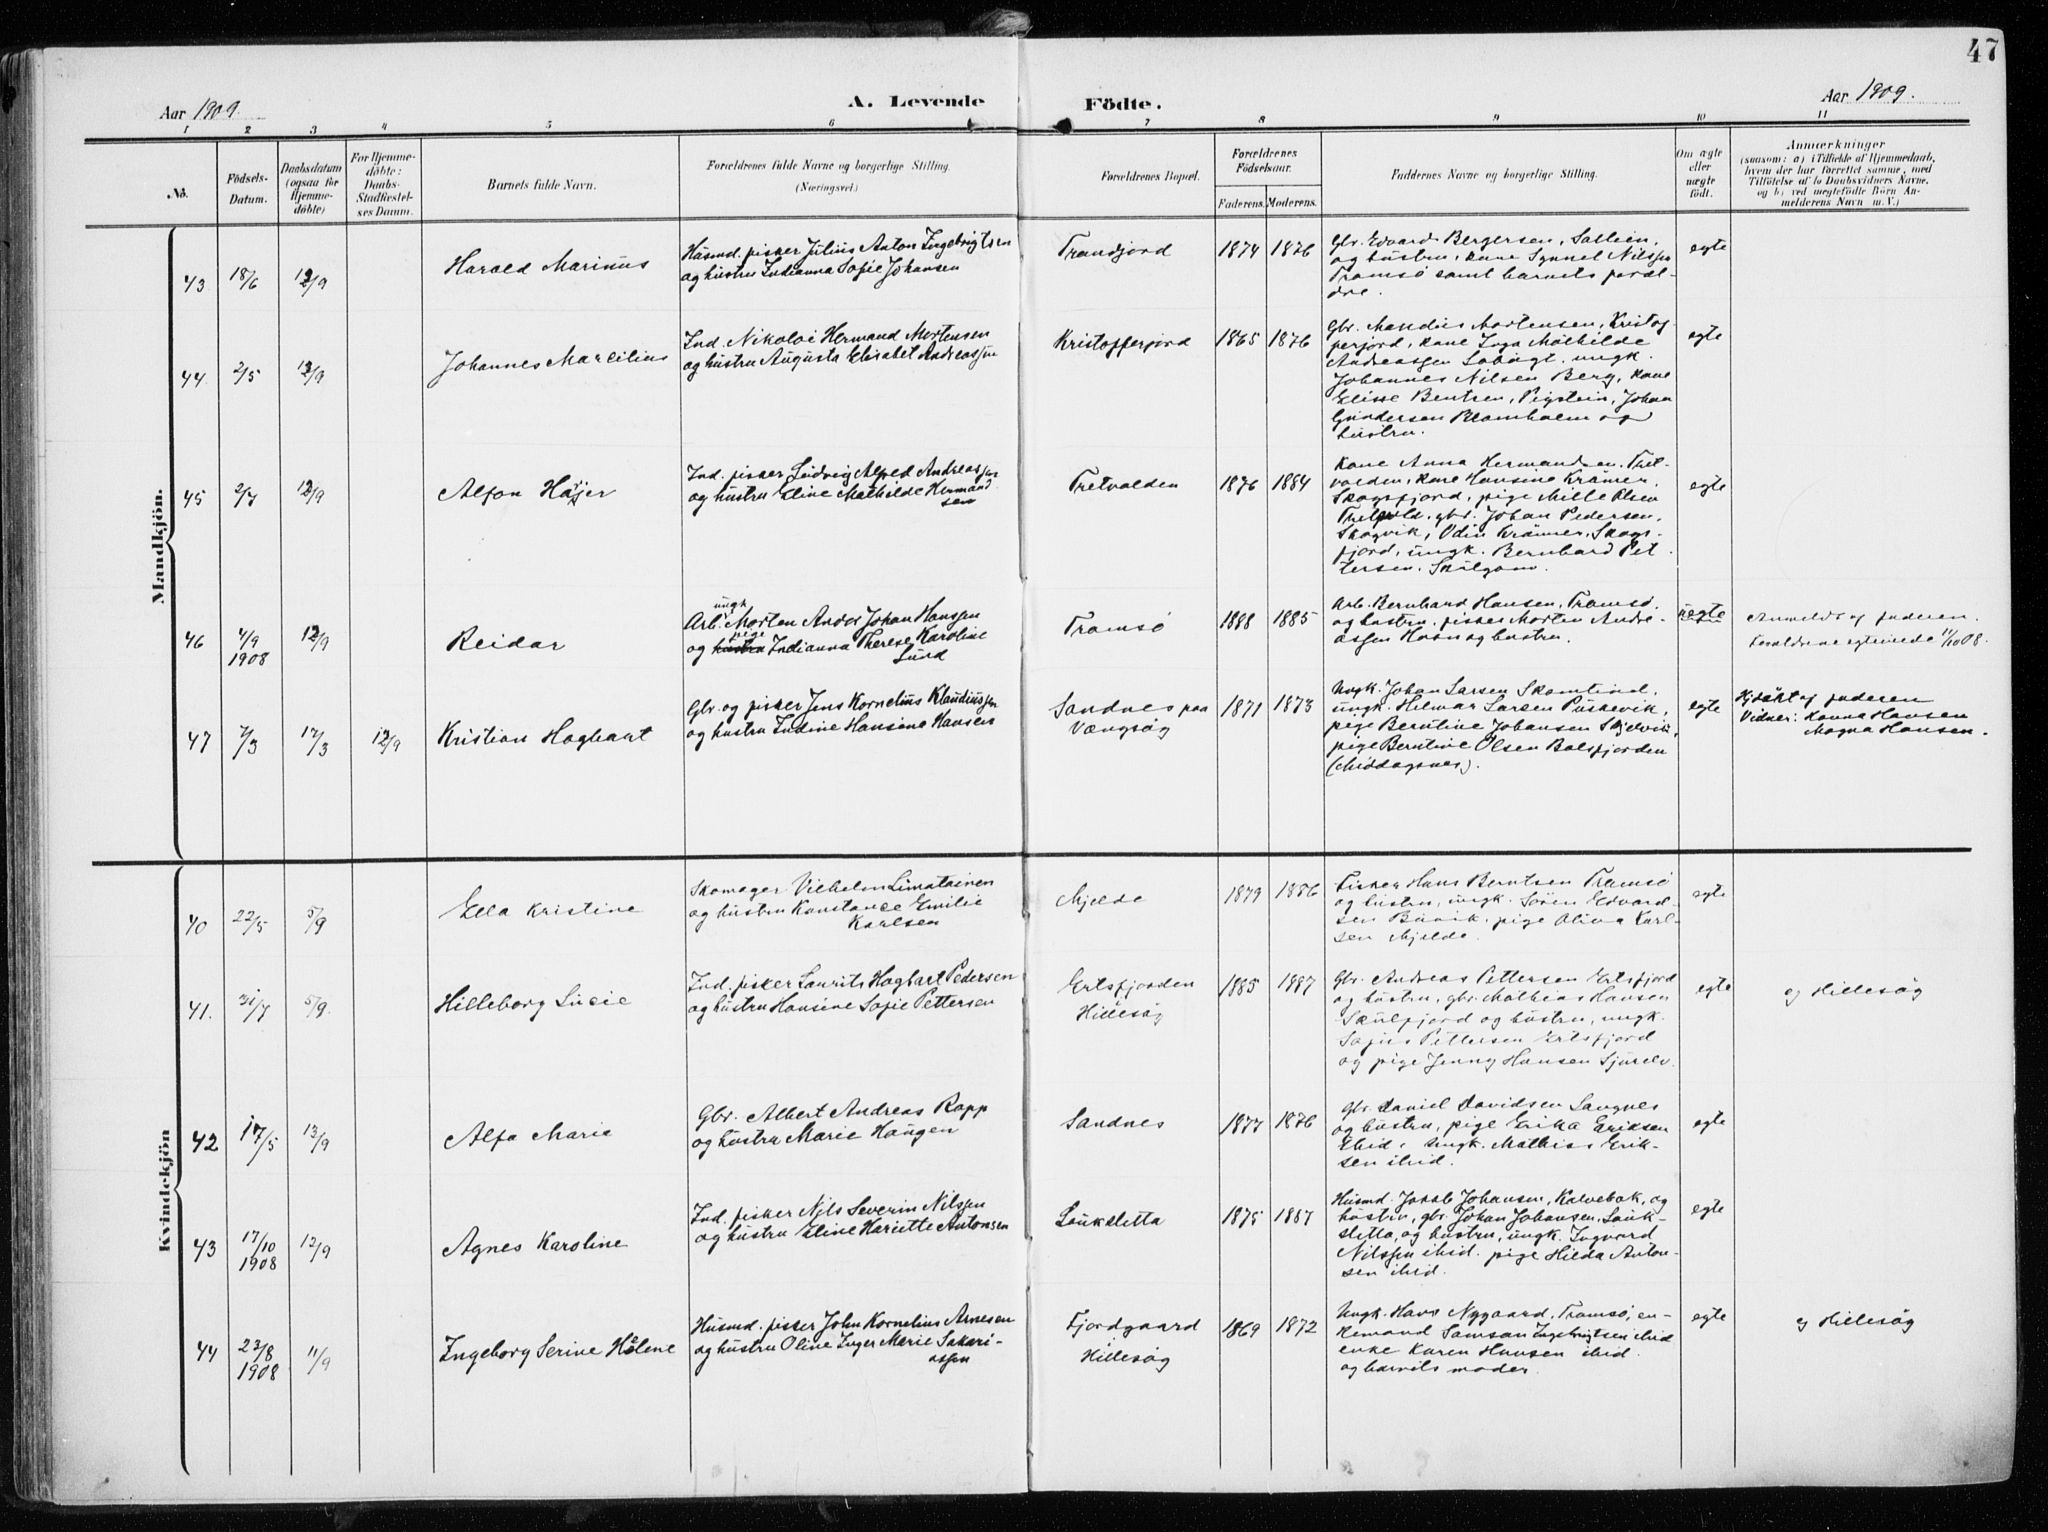 47
Aar 1909.
A. Levende
Födte.
Aar 1909.
1 2 3 4 5 6 7 8 9 10 11
No.
Födsels-
Datum.
Daabsdatum
(ogsaa for
Hjemme-
döbte)
For Hjemme-
döbte:
Daabs-
Stadfæstel-
ses Datum.
Barnets fulde Navn.
Forældrenes fulde Navne og borgerlige Stilling.
(Næringsvei.)
Forældrenes Bopæl.
Forældrenes
Födselsaar.
Faderens. Moderens.
Faddernes Navne og borgerlige Stilling.
Om ægte
eller
uægte
födt.
Anmærkninger
(saasom: a) i Tilfælde af Hjemmedaab,
hvem der har forrettet samme, med
Tilföielse af to Daabsvidners Navne,
og b) ved uegtefödte Börn An-
melderens Navn m. V.)
Mandkjön.
43
18/6
12/9
Harald Marinus
Husmd. fisker Julius Anton Ingebrigtsen
og hustru Indianna Sofie Johansen
Tranfjord
1874 1876
Gbr. Edvard Bergersen,
og hustru, kone Synnel Nilssen
Tromsö samt barnets foræl-
dre.
egte
44
2/5
12/9
Johannes Marcilius
Ind. Nikolai Hermand Mortensen
og hustru Augusta Elisabet Andreassen
Kristofferjord
1865 1876
Gbr. Mandus Mortensen, Kristof
ferjord, kone Inga Mathilde
Andreassen ungk.
Johannes Nilsen Berg, kone
Elisse Bentsen, Pigstein, Johan
Gundersen Blomholm og
hustru.
egte
45
2/7
12/9
Alfon Hajer
Ind. fisker Ludvig Alfred Andreassen
og hustru Eline Mathilde Hermand
sen
Tretvolden
1876 1884
Kone Anna Hermandsen, Tret-
volden, kone Hansine Krämer,
Skogsfjord, pige Mille Olsen
gbr. Johan Pedersen,
Skogvik, Odin Krämer, Skogs-
fjord, ungk. Bernhard Pet
tersen, Skulgam.
egte
46
4/9
1908
12/9
Reidar
ungk
Arb. Morten Andor Johan Hanssen
pige
og hustru Indianna Therese Karoline
Lund
Tromsö
1888 1885
Arb. Bernhard Hansen, Tromsö,
og hustru, fisker Morten Andre-
assen Havn og hustru.
uegte
Anmeldt af faderen.
Forældrene egteviede 11/10 08.
47
7/3
17/3
12/9
Kristian Hagbart
Gbr. og fisker Jens Kornelius Klaudiussen
og hustru Indine Hansine Hansen
Sandnes paa
Vængsög
1871 1873
Ungk. Johan Larsen Skamtind,
ungk. Hilmar Larsen Buskevik,
pige Berntine Johansen Skjelvik,
pige Berntine Olsen Balsfjorden
(Middagsnes).
egte
Hjdöbt af faderen
Vidner: Hanna Hansen
Magna Hansen.
Kvindekjön
40
22/5
5/9
Ella Kristine
Skomager Vilhelm Limatainen
og hustru Konstance Emilie
Karlsen
Mjelde
1879 1886
Fisker Hans Berntsen Tromsö
og hustru, ungk. Sören Edvard-
sen Buvik, pige Oliva Karl-
sen Mjelde.
egte
41.
31/7
5/9.
Hilleborg Lucie
Ind. fisker Laurits Hagbart Pedersen
og hustru Hansine Sofie Pettersen
Ertsfjorden
Hillesög
1885 1887
Gbr. Andreas Pettersen Ertsfjord
og hustru, gbr. Mathias Hansen
Skulfjord og hustru, ungk.
Sofus Pettersen Ertsfjord
og pige Jenny Hansen Sjurelv.
egte
ej Hillesög
42
17/5
13/9
Alfa Marie
Gbr. Albert Andreas Rapp
og hustru Marie Haugen
Sandnes
1877 1876
Gbr. Daniel Davidsen Langnes
og hustru, pige Erika Eriksen
Ebid, ungk. Mathias Erik-
sen ibid.
egte
43
17/10
1908
12/9
Agnes Karoline
Ind. fisker Nils Severin Nilssen
og hustru Eline Hariette Antonsen
Laukslitta
1875 1887
Husmd. Jakob Johansen, Kalvebak, og
hustru, gbr. Johan Johansen, Lauk-
slitta, og hustru, ungk. Ingvard
Nilssen ibid. pige Hilda Anton-
sen ibid.
egte
44
23/8
1908
11/9
Ingeborg Serine Hålene
Husmd. fisker John Kornelius Arnesen
og hustru Oline Inger Marie Sakari-
assen
Fjordgaard
Hillesög
1869 1872
Ungk. Hans Nygaard, Tromsö, en-
kemand Samson Ingebrigtsen ibid
enke Karen Hansen ibid.
og barnets moder.
egte
ej Hillesög